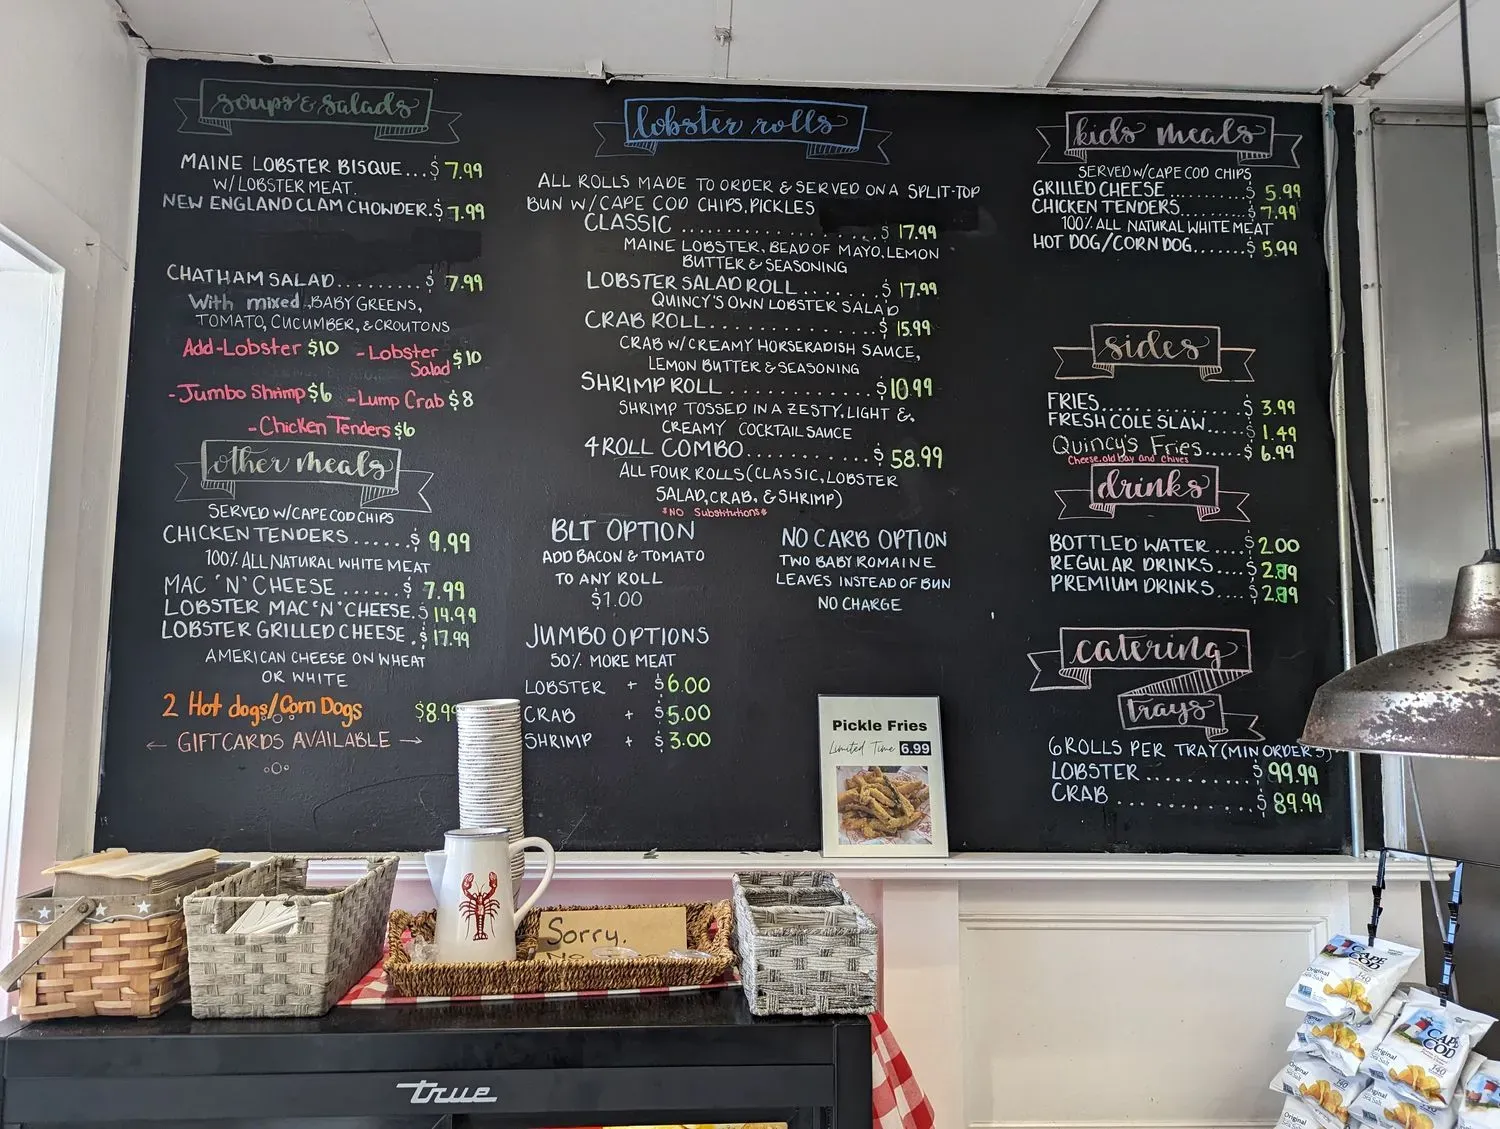 soups & salads
MAINE LOBSTER BISQUE...$7.99
W/LOBSTER MEAT.
NEW ENGLAND CLAM CHOWDER.$7.99
CHATHAM SALAD.........$7.99
With mixed ,BABY GREENS,
TOMATO, CUCUMBER, & CROUTONS
Add-Lobster $10 -Lobster Salad $10
-Jumbo Shrimp $6 -Lump Crab $8
-Chicken Tenders $6
other meals
SERVED W/CAPE COD CHIPS
CHICKEN TENDERS......$9.99
100% ALL NATURAL WHITE MEAT
MAC 'N' CHEESE......$7.99
LOBSTER MAC 'N' CHEESE.$14.99
LOBSTER GRILLED CHEESE.$17.99
AMERICAN CHEESE ON WHEAT
OR WHITE
2 Hot dogs/Corn Dogs $8.99
← GIFTCARDS AVAILABLE →
lobster rolls
ALL ROLLS MADE TO ORDER & SERVED ON A SPLIT-TOP
BUN W/CAPE COD CHIPS, PICKLES
CLASSIC....................$17.99
MAINE LOBSTER, BEAD OF MAYO, LEMON
BUTTER & SEASONING
LOBSTER SALAD ROLL.......$17.99
QUINCY'S OWN LOBSTER SALAD
CRAB ROLL.................$15.99
CRAB W/CREAMY HORSERADISH SAUCE,
LEMON BUTTER & SEASONING
SHRIMP ROLL..............$10.99
SHRIMP TOSSED IN A ZESTY, LIGHT &
CREAMY COCKTAIL SAUCE
4 ROLL COMBO............$58.99
ALL FOUR ROLLS (CLASSIC, LOBSTER
SALAD, CRAB, & SHRIMP)
*NO Substitutions*
BLT OPTION
ADD BACON & TOMATO
TO ANY ROLL
$1.00
NO CARB OPTION
TWO BABY ROMAINE
LEAVES INSTEAD OF BUN
NO CHARGE
JUMBO OPTIONS
50% MORE MEAT
LOBSTER + $6.00
CRAB + $5.00
SHRIMP + $3.00
Pickle Fries
Limited Time 6.99
kids meals
SERVED W/CAPE COD CHIPS
GRILLED CHEESE.........$5.99
CHICKEN TENDERS.......$7.99
100% ALL NATURAL WHITE MEAT
HOT DOG/CORN DOG......$5.99
sides
FRIES................$3.99
FRESH COLE SLAW....$1.49
Quincy's Fries.....$6.99
Cheese, old bay and chives
drinks
BOTTLED WATER....$2.00
REGULAR DRINKS....$2.89
PREMIUM DRINKS...$2.89
catering
trays
6 ROLLS PER TRAY (MIN ORDER 3)
LOBSTER..........$99.99
CRAB............$89.99
Sorry.
No
true
CAPE COD
Original
Sea Salt
140
CAPE COD
Original
Sea Salt
140